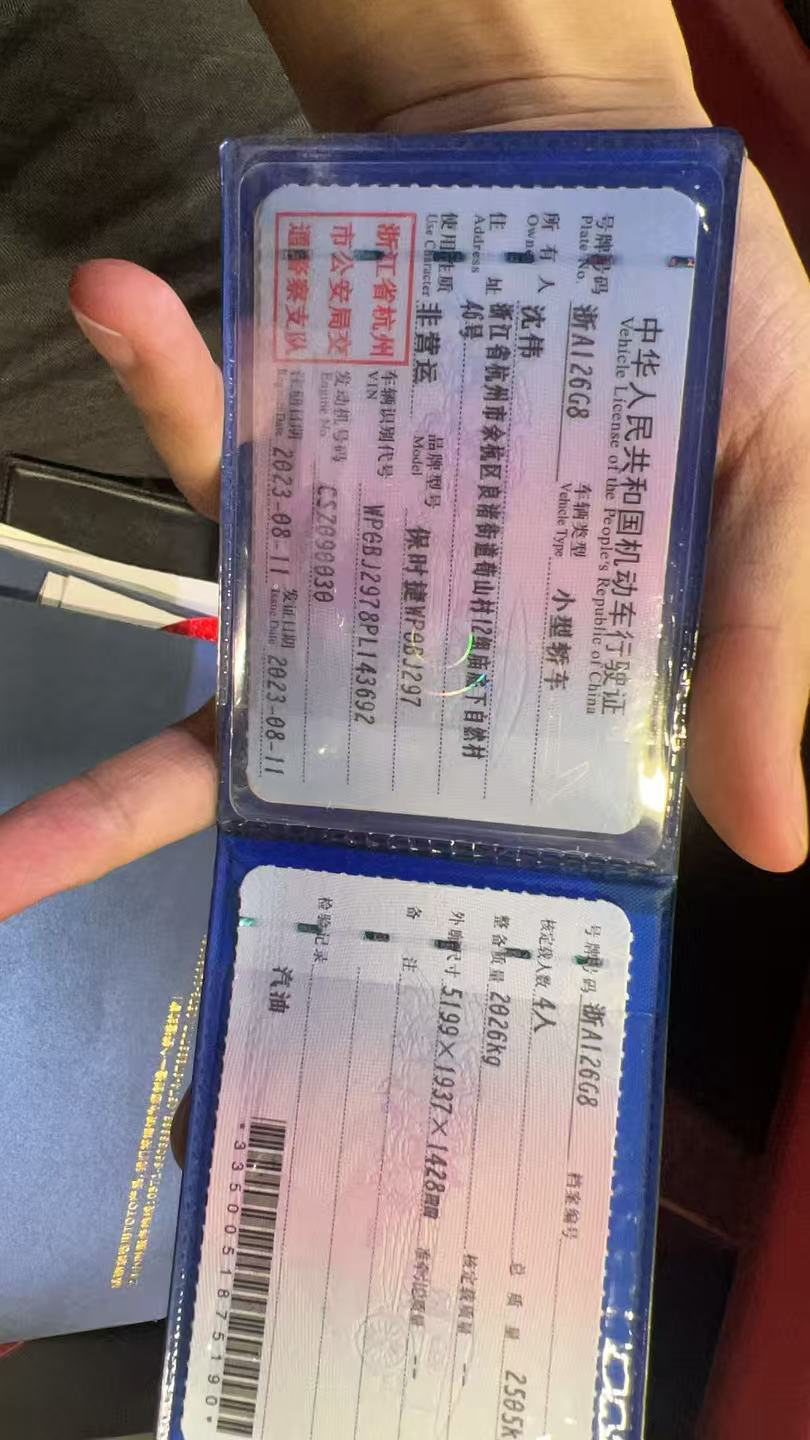 中华人民共和国机动车行驶证
Vehicle License of the People's Republic of China
号牌号码 浙A126G8 车辆类型 小型轿车
Plate No. Vehicle Type
所有人 沈伟
Owner
住址 浙江省杭州市余杭区良渚街道荀山村12组庙廊下自然村
Address 46号
使用性质 非营运 品牌型号 保时捷WP0BJ297
Use Character Model
浙江省杭州
市公安局交
通警察支队
车辆识别代号 WP0BJ2978PL143692
VIN
发动机号码 CSZ090030
Engine No.
注册日期 2023-08-11 发证日期 2023-08-11
Register Date Issue Date
号牌号码 浙A126G8 档案编号
核定载人数 4人 总质量 2505k
整备质量 2026kg 核定载质量 --
外廓尺寸 5199×1937×1428mm 准牵引总质量 --
备注
检验记录
汽油
*3350051875190*